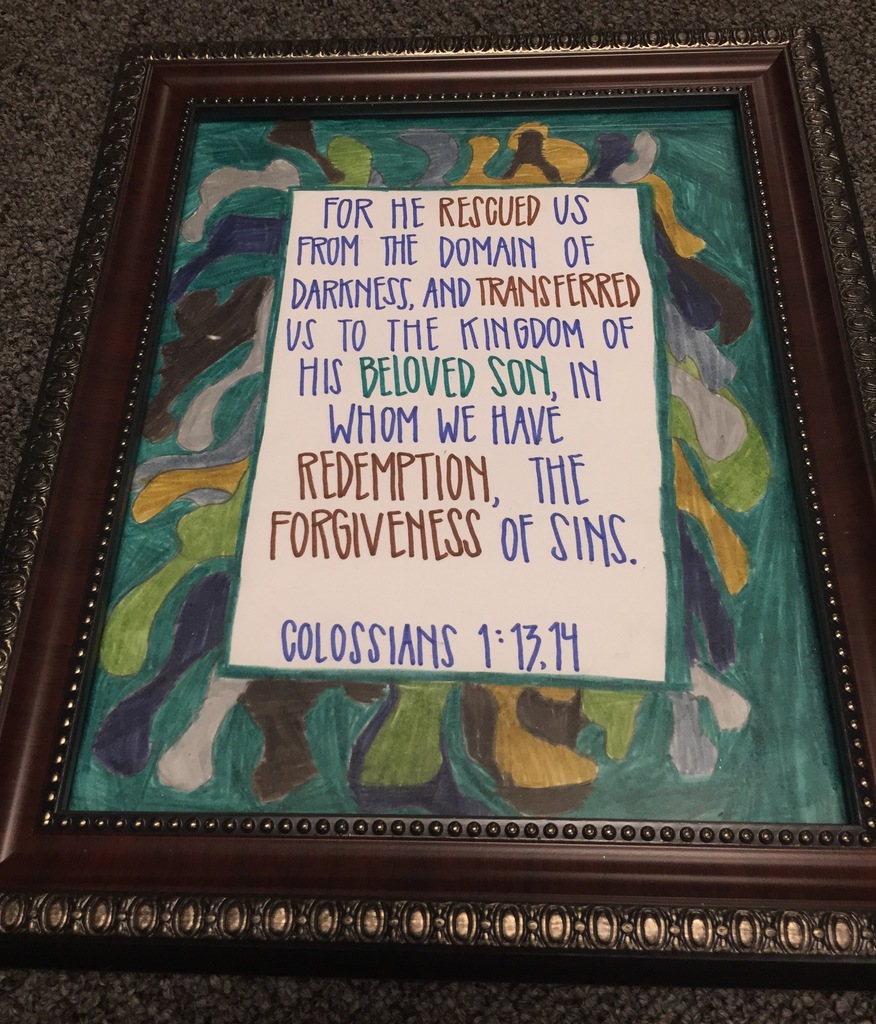 FOR HE RESCUED US
FROM THE DOMAIN OF
DARKNESS, AND TRANSFERRED
US TO THE KINGDOM OF
HIS BELOVED SON, IN
WHOM WE HAVE
REDEMPTION, THE
FORGIVENESS OF SINS.
COLOSSIANS 1:13,14